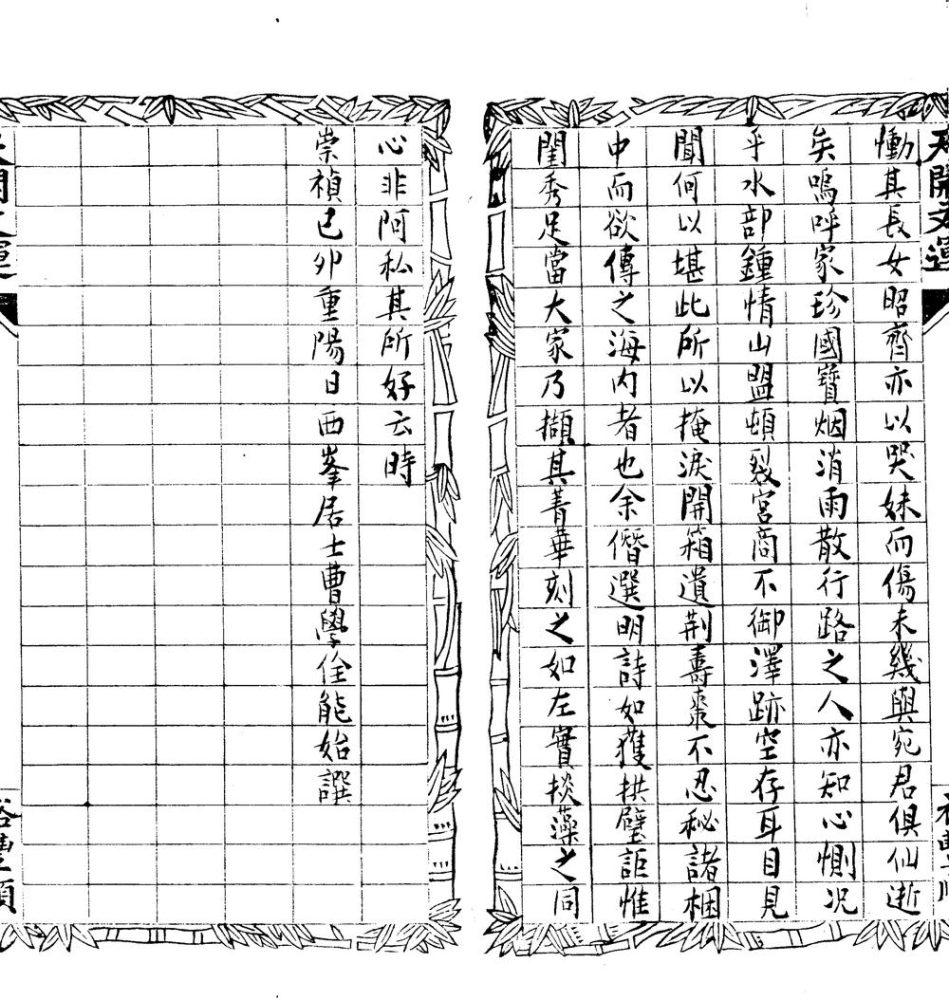 天開文運
慟其長女昭齊亦以哭妹而傷未幾與宛君俱仙逝
矣嗚呼家珍國寶烟消雨散行路之人亦知心惻况
乎水部鍾情山盟頓裂宮商不御澤跡空存耳目見
聞何以堪此所以掩淚開箱遺荆壽棗不忍秘諸梱
中而欲傳之海内者也余僭選明詩如獲拱璧詎惟
閨秀足當大家乃擷其菁華刻之如左實掞藻之同
心非阿私其所好云時
崇禎己卯重陽日西峯居士曹學佺能始譔